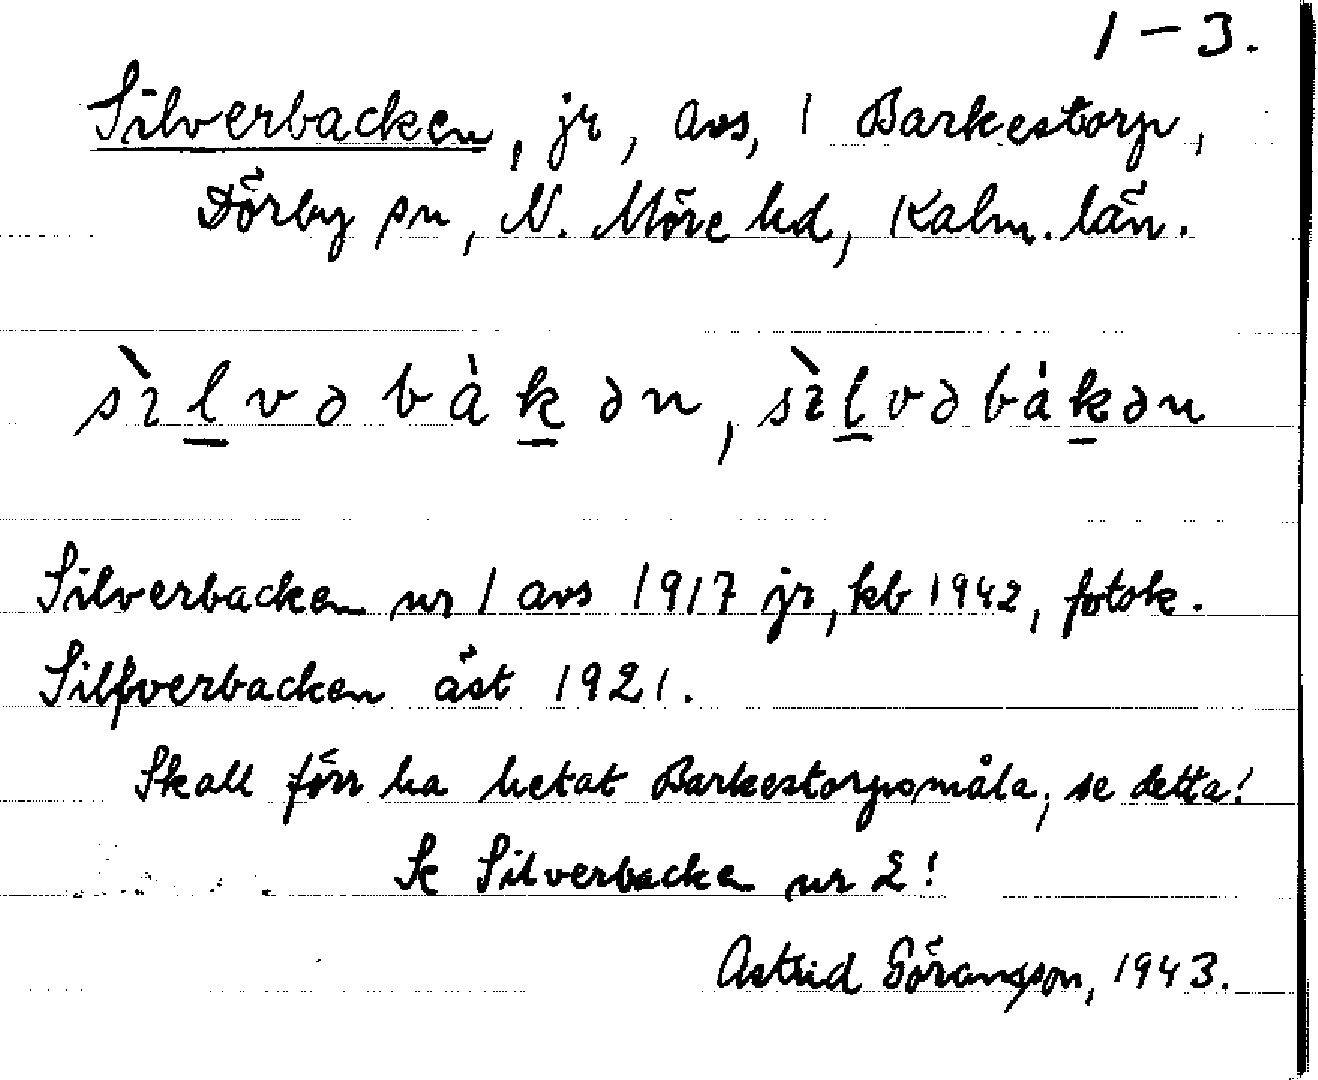 1-3.
Silverbacken, jr, avs, 1 Barkestorp,
Dörby sn, N. Möre hd, Kalm. län.
sìlvəbàkən, sìlvəbàkən
Silverbacken nr 1 avs 1917 jr, kb 1942, fotok.
Silfverbacken äst 1921.
Skall förr ha hetat Barkestorpsmåla, se detta!
Se Silverbacken nr 2!
Astrid Göransson, 1943.